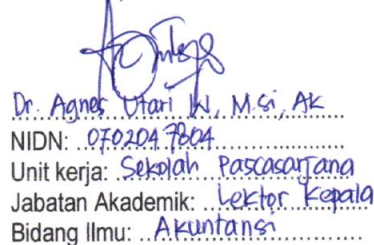 Dr. Agnes Utari W, M.Si, AK
NIDN: 0702047804
Unit kerja: Sekolah Pascasarjana
Jabatan Akademik: Lektor Kepala
Bidang Ilmu: Akuntansi